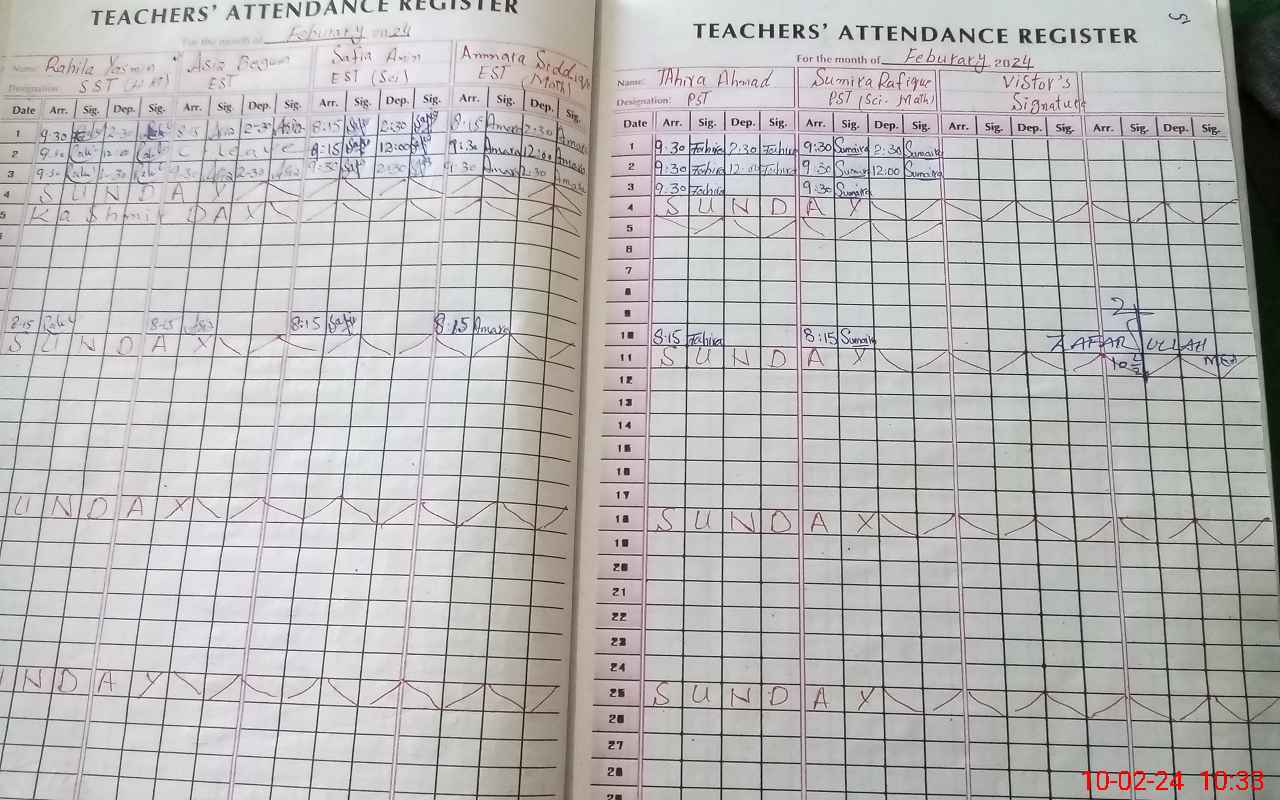 TEACHERS' ATTENDANCE REGISTER
For the month of Feburary 2024
Name: Rahila Yasmin Asia Begum Safia Amin Ammara Siddiqa
Designation: SST EST EST (Sci) EST (Math)
Date Arr. Sig. Dep. Sig. Arr. Sig. Dep. Sig. Arr. Sig. Dep. Sig. Arr. Sig. Dep. Sig.
1 9:30 2:30 8:15 2:30 8:15 2:30 9:15 Amara 2:30 Amara
2 9:30 12:00 C. leave 9:15 12:00 9:30 Amara 12:00 Amara
3 9:30 2:30 9:30 2:30 9:30 2:30 9:30 Amara 2:30 Amara
4 SUNDAY
5 Kashmir DAY
8:15 8:15 8:15 8:15 Amara
SUNDAY
UNDAY
UNDAY
5
TEACHERS' ATTENDANCE REGISTER
For the month of Feburary 2024
Name: TAhira Ahmad Sumira Rafique Vistor's
Designation: PST PST (Sci. Math) Signature
Date Arr. Sig. Dep. Sig. Arr. Sig. Dep. Sig. Arr. Sig. Dep. Sig. Arr. Sig. Dep. Sig.
1 9:30 Tahira 2:30 Tahira 9:30 Sumaira 2:30 Sumaira
2 9:30 Tahira 12:00 Tahira 9:30 Sumaira 12:00 Sumaira
3 9:30 Tahira 9:30 Sumaira
4 SUNDAY
5
6
7
8
9
10 8:15 Tahira 8:15 Sumaira ZAFAR ULLAH
11 SUNDAY MEA
12
13
14
15
16
17
18 SUNDAY
19
20
21
22
23
24
25 SUNDAY
26
27
28
10-02-24 10:33